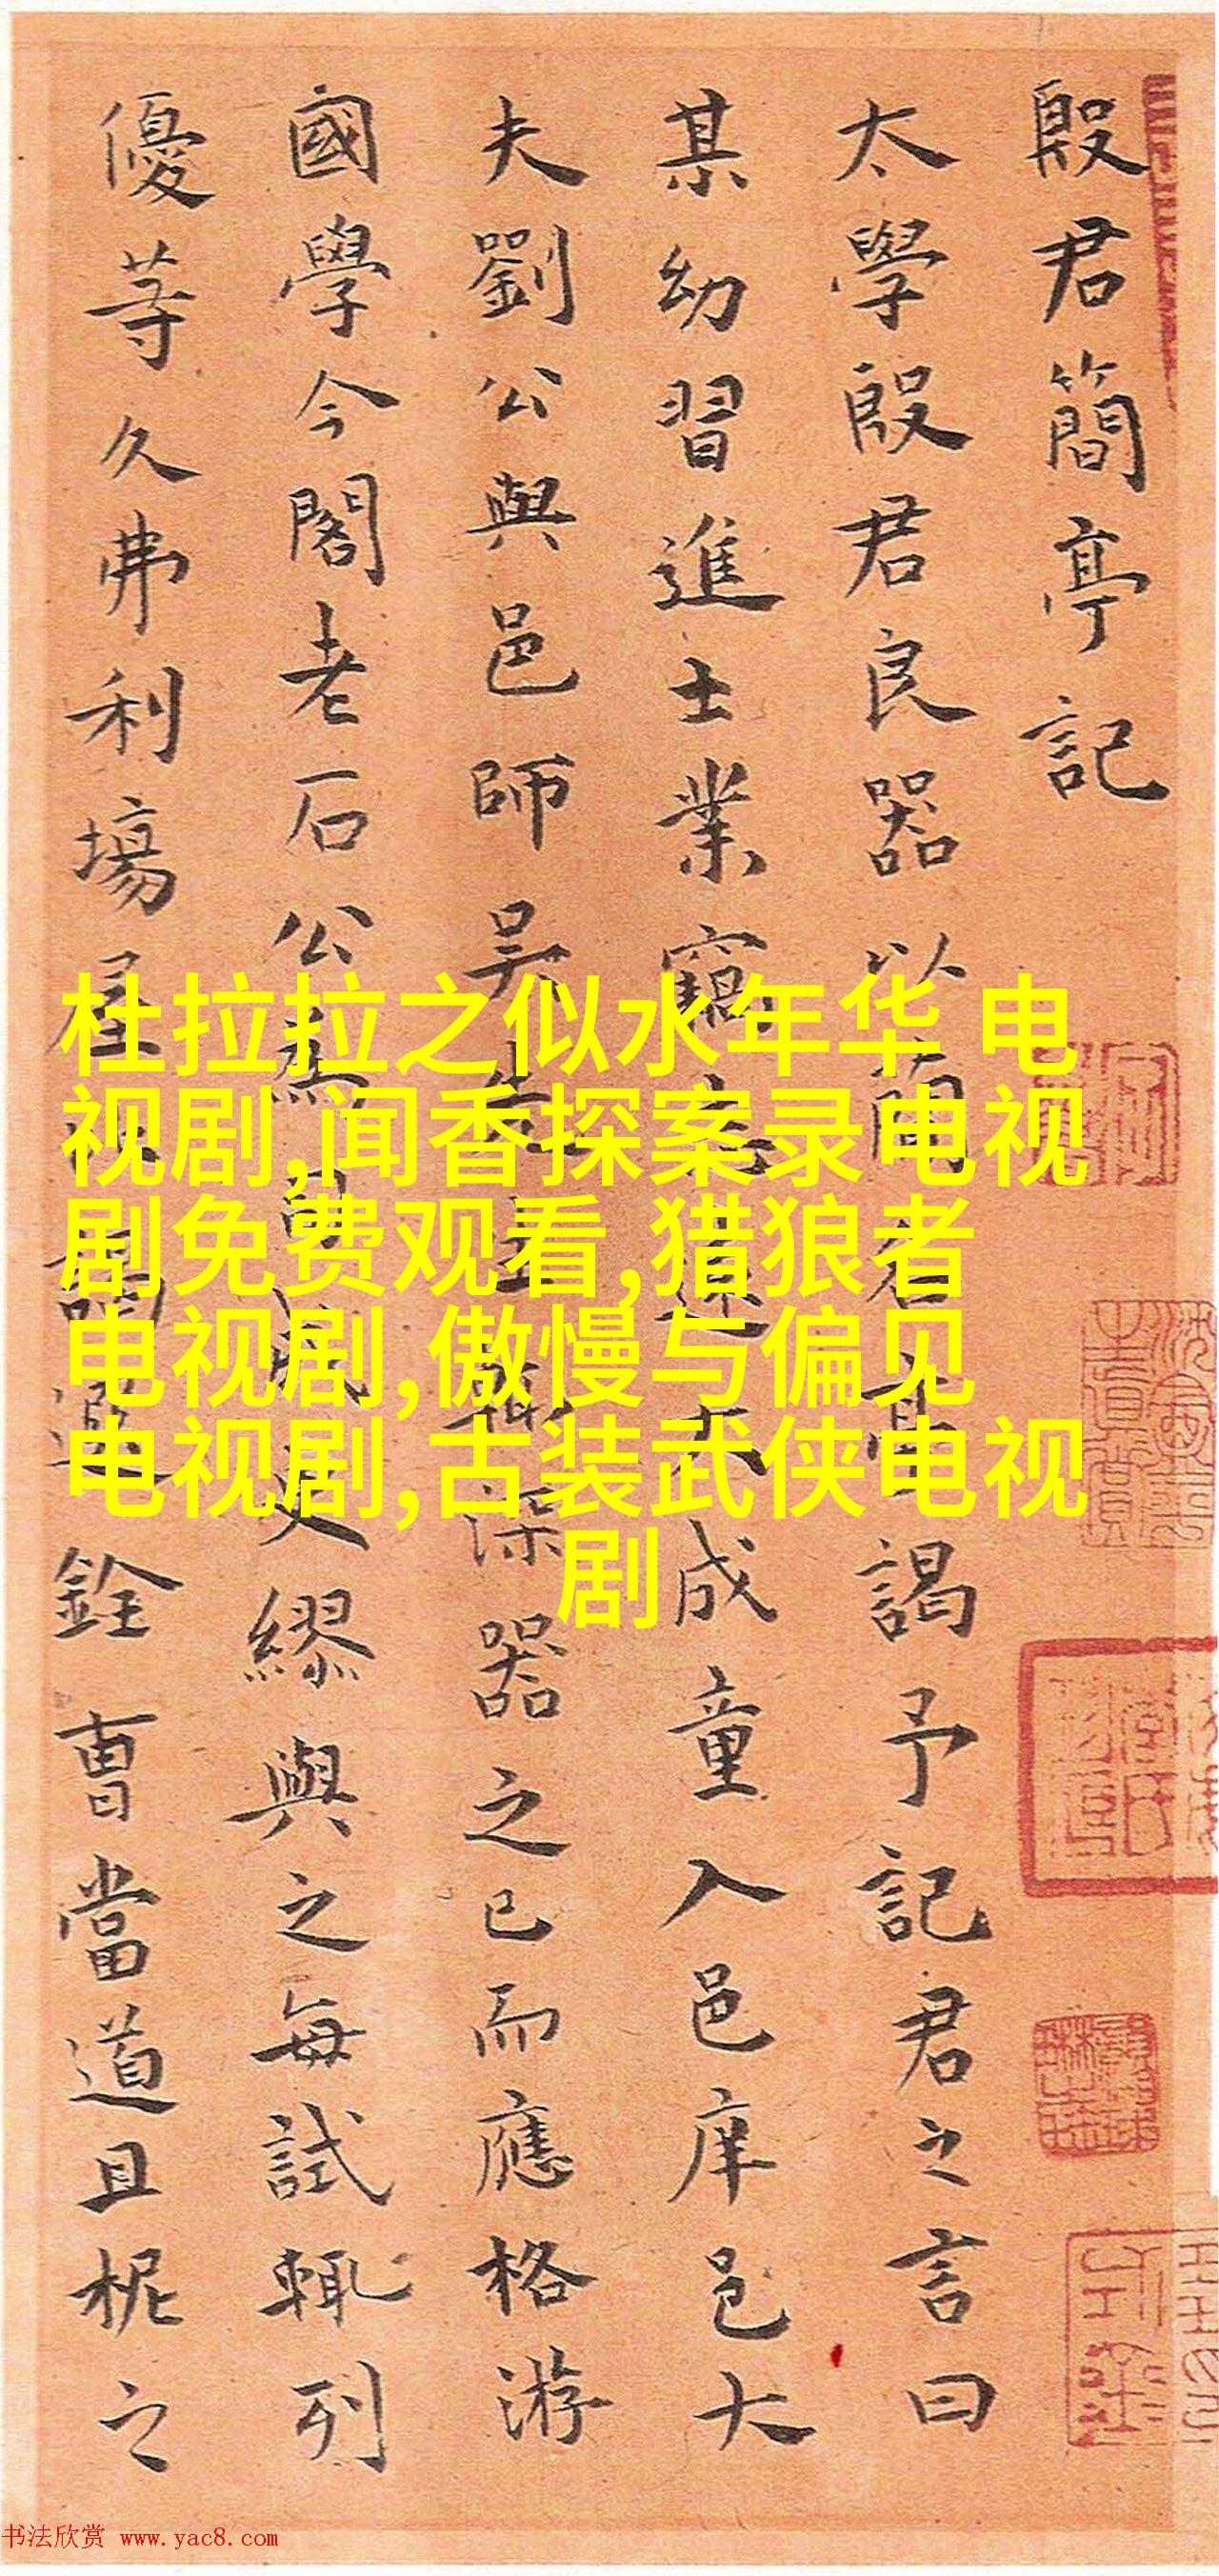 殷君簡亭記
太學殷君良器以謁予記君之言曰
某幼習進士業竊成童入邑庠邑大
夫劉公與邑師吳深器之已而應格游
國學今閣老石公繆與之每試輒列
優等久弗利場屋銓曹當道且柅之
杜拉拉之似水年华 电
视剧,闻香探案录电视
剧免费观看,猎狼者
电视剧,傲慢与偏见
电视剧,古装武侠电视
剧
书法欣赏 www.yac8.com